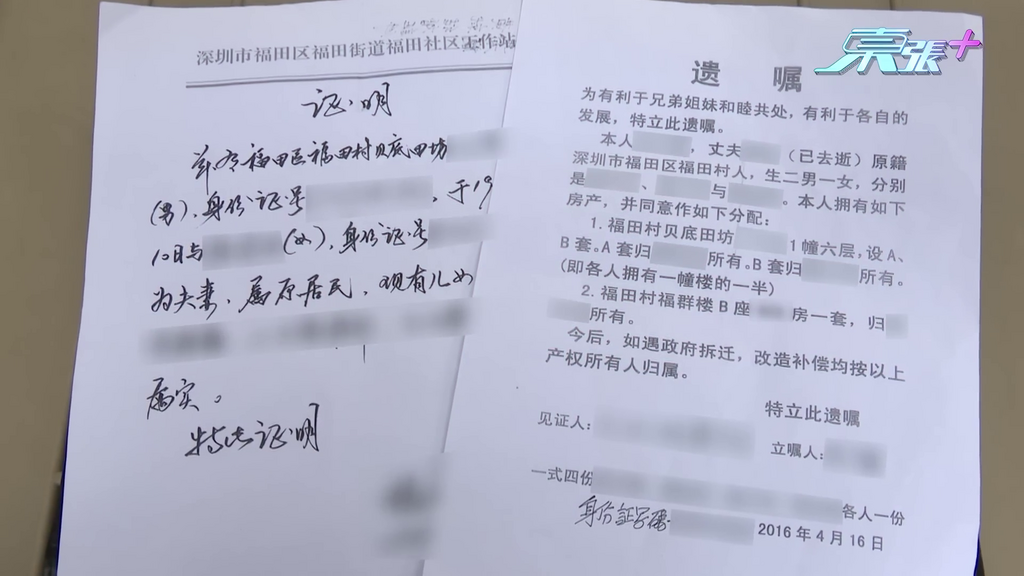 深圳市福田区福田街道福田社区工作站
证明
兹有福田区福田村贝底田坊
(男)、身份证号 ,于19
10日与 (女),身份证号
为夫妻,属原居民,现有儿女
属实。
特此证明
東張+
遗 嘱
为有利于兄弟姐妹和睦共处,有利于各自的
发展,特立此遗嘱。
本人 ,丈夫 (已去逝)原籍
深圳市福田区福田村人,生二男一女,分别
是 、 与 。本人拥有如下
房产,并同意作如下分配:
1.福田村贝底田坊 1幢六层,设A、
B套。A套归 所有。B套归 所有。
(即各人拥有一幢楼的一半)
2.福田村福群楼B座 房一套,归
所有。
今后,如遇政府拆迁,改造补偿均按以上
产权所有人归属。
特立此遗嘱
见证人:
立嘱人:
一式四份 各人一份
身份证号码
2016年4月16日